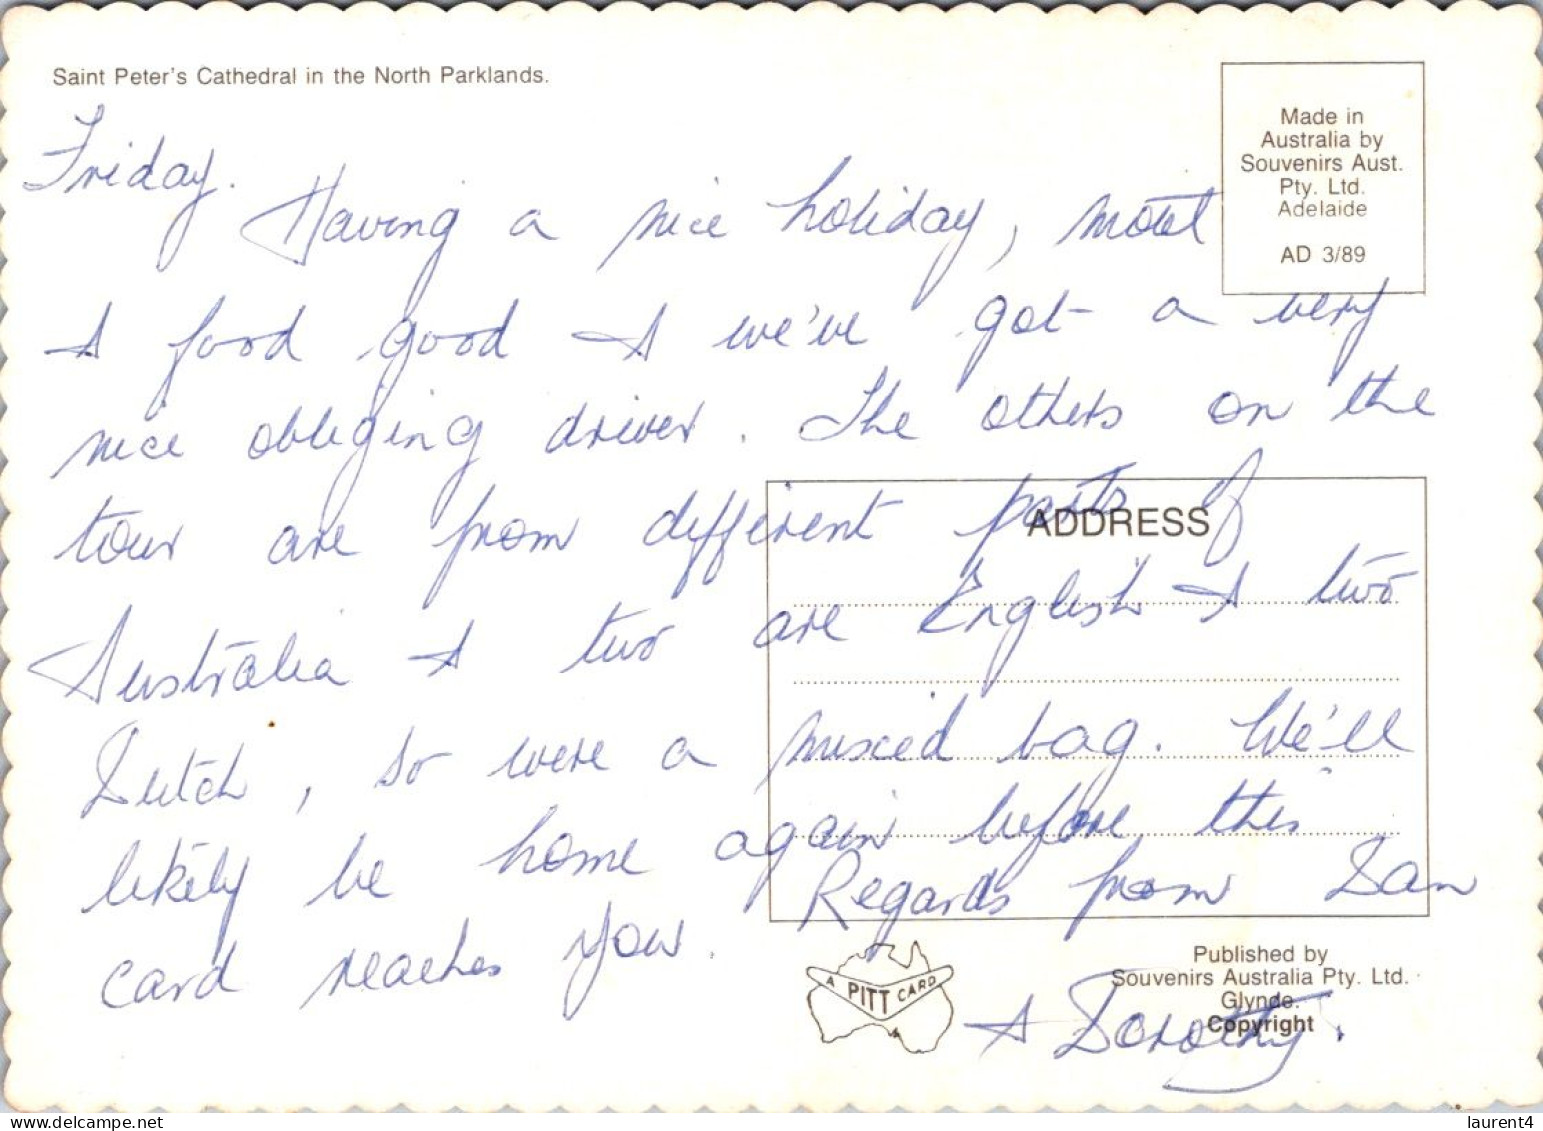 Saint Peter's Cathedral in the North Parklands.
Made in
Australia by
Souvenirs Aust.
Pty. Ltd.
Adelaide
AD 3/89
Friday.
Having a nice holiday, motel
& food good & we've got a very
nice obliging driver. The others on the
tour are from different parts of
Australia & two are English & two
Dutch, so were a mixed bag. We'll
likely be home again before this
card reaches you. Regards from Dan
& Dorothy.
ADDRESS
A PITT CARD
Published by
Souvenirs Australia Pty. Ltd.
Glynde.
Copyright
delcampe.net
laurent4